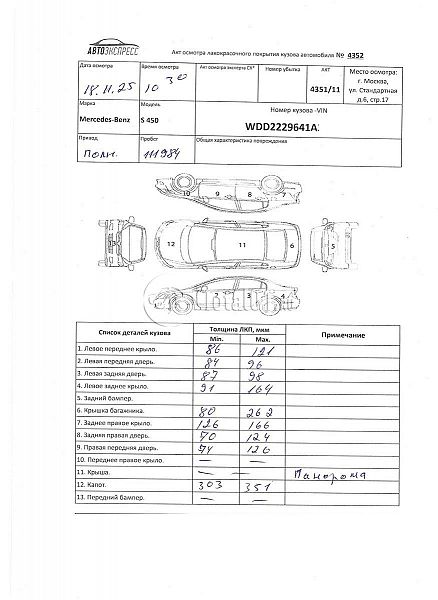 АВТОЭКСПРЕСС
Акт осмотра лакокрасочного покрытия кузова автомобиля № 4352
Дата осмотра Время осмотра Акт осмотра эксперта СК* Номер убытка АКТ Место осмотра:
18.11.25 10 30 4351/11 г. Москва,
ул. Стандартная
д.6, стр.17
Марка Модель Номер кузова -VIN
Mercedes-Benz S 450 WDD2229641A
Привод Пробег Общая характеристика повреждений
Полн. 111984
10 9 8 7
13 12 11 6 5
2 3 4
Список деталей кузова Толщина ЛКП, мкм Примечание
Min. Max.
1. Левое переднее крыло. 86 121
2. Левая передняя дверь. 84 96
3. Левая задняя дверь. 87 98
4. Левое заднее крыло. 91 164
5. Задний бампер.
6. Крышка багажника. 80 262
7. Заднее правое крыло. 126 166
8. Задняя правая дверь. 70 124
9. Правая передняя дверь. 74 126
10. Переднее правое крыло. — —
11. Крыша. — — Панорама
12. Капот. 303 351
13. Передний бампер.